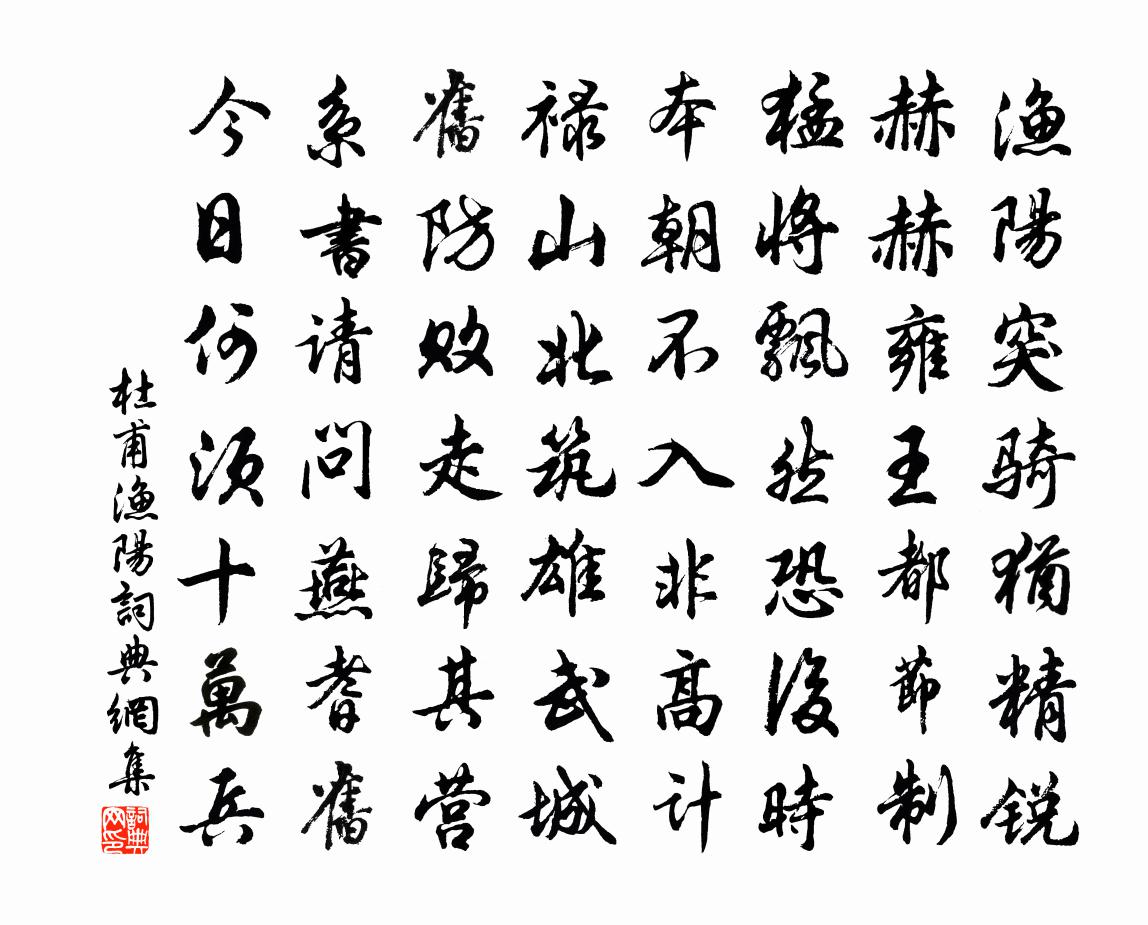 漁陽突騎猶精锐
赫赫雍王都節制
猛將飄然恐後時
本朝不入非高計
禄山北筑雄武城
舊防敗走歸其营
系書请問燕耆舊
今日何須十萬兵
杜甫漁陽詞典網集
詞典网印